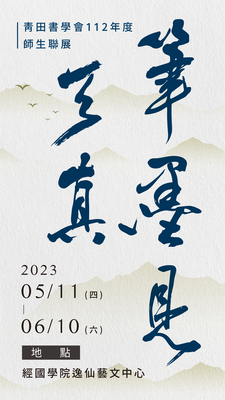 青田書學會112年度
師生聯展
筆墨見
天真
2023
05/11(四)
06/10(六)
地點
經國學院逸仙藝文中心